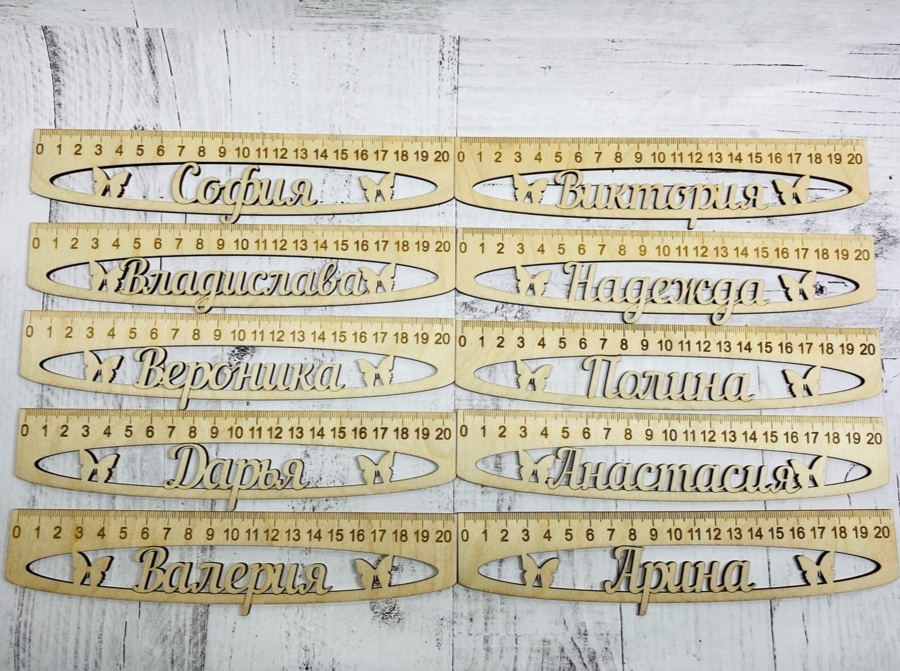 0 1 2 3 4 5 6 7 8 9 10 11 12 13 14 15 16 17 18 19 20
София
0 1 2 3 4 5 6 7 8 9 10 11 12 13 14 15 16 17 18 19 20
Виктория
0 1 2 3 4 5 6 7 8 9 10 11 12 13 14 15 16 17 18 19 20
Владислава
0 1 2 3 4 5 6 7 8 9 10 11 12 13 14 15 16 17 18 19 20
Надежда
0 1 2 3 4 5 6 7 8 9 10 11 12 13 14 15 16 17 18 19 20
Вероника
0 1 2 3 4 5 6 7 8 9 10 11 12 13 14 15 16 17 18 19 20
Полина
0 1 2 3 4 5 6 7 8 9 10 11 12 13 14 15 16 17 18 19 20
Дарья
0 1 2 3 4 5 6 7 8 9 10 11 12 13 14 15 16 17 18 19 20
Анастасия
0 1 2 3 4 5 6 7 8 9 10 11 12 13 14 15 16 17 18 19 20
Валерия
0 1 2 3 4 5 6 7 8 9 10 11 12 13 14 15 16 17 18 19 20
Арина